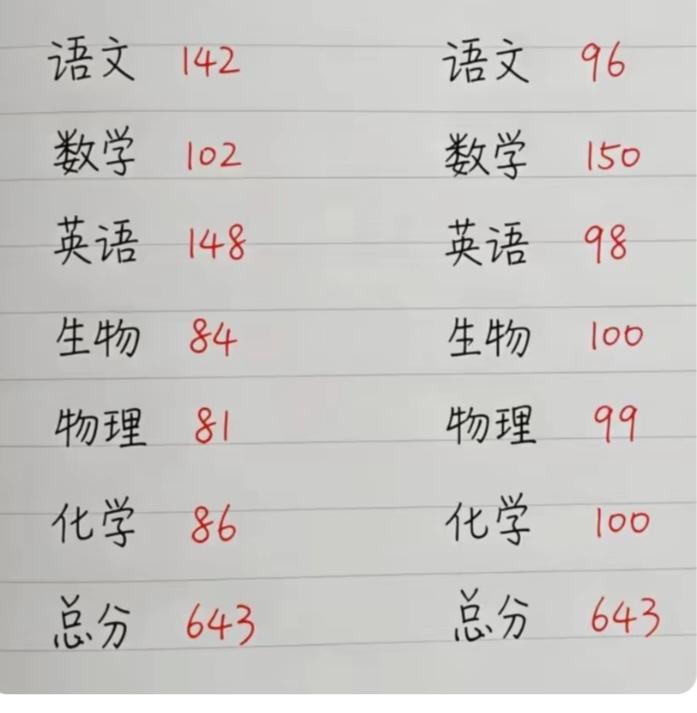 语文 142 语文 96
数学 102 数学 150
英语 148 英语 98
生物 84 生物 100
物理 81 物理 99
化学 86 化学 100
总分 643 总分 643